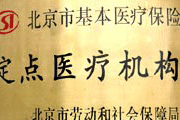 北京市基本医疗保险
定点医疗机构
北京市劳动和社会保障局